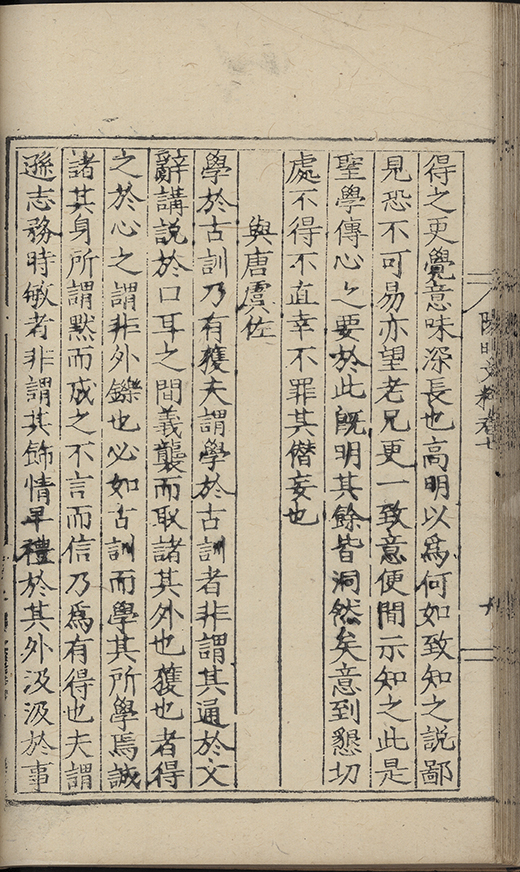 得之更覺意味深長也高明以爲何如致知之說鄙
見恐不可易亦望老兄更一致意便間示知之此是
聖學傳心之要於此旣明其餘皆洞然矣意到懇切
處不得不直幸不罪其僭妄也
與唐虞佐
學於古訓乃有獲夫謂學於古訓者非謂其通於文
辭講說於口耳之間義襲而取諸其外也獲也者得
之於心之謂非外鑠也必如古訓而學其所學焉誠
諸其身所謂黙而成之不言而信乃爲有得也夫謂
遜志務時敏者非謂其飾情卑禮於其外汲汲於事